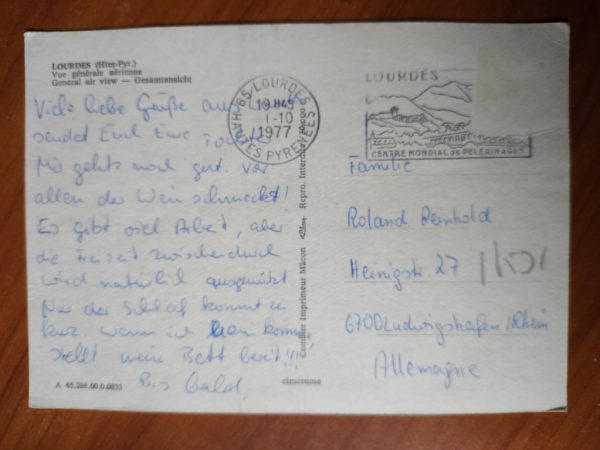 LOURDES (Htes-Pyr.)
Vue générale aérienne
General air view — Gesamtansicht
Viele liebe Grüße aus
sendet Euch Eure
Mir gehts noch gut. Vor
allem der Wein schmeckt!
Es gibt viel Arbeit, aber
die Freizeit zwischendurch
wird natürlich ausgenützt
Nur der Schlaf kommt zu
kurz. Wann ich heim komme
stellt mein Bett bereit!!!
Bis bald.
A 65.286.00.0.0633
cimcrome
Combier Imprimeur Mâcon
Repro. Interdite
65 LOURDES
19H45
1-10
1977
HAUTES PYRENEES
LOURDES
CENTRE MONDIAL DE PELERINAGES
Familie
Roland Reinhold
Heinigstr. 27
6700 Ludwigshafen/Rhein
Allemagne